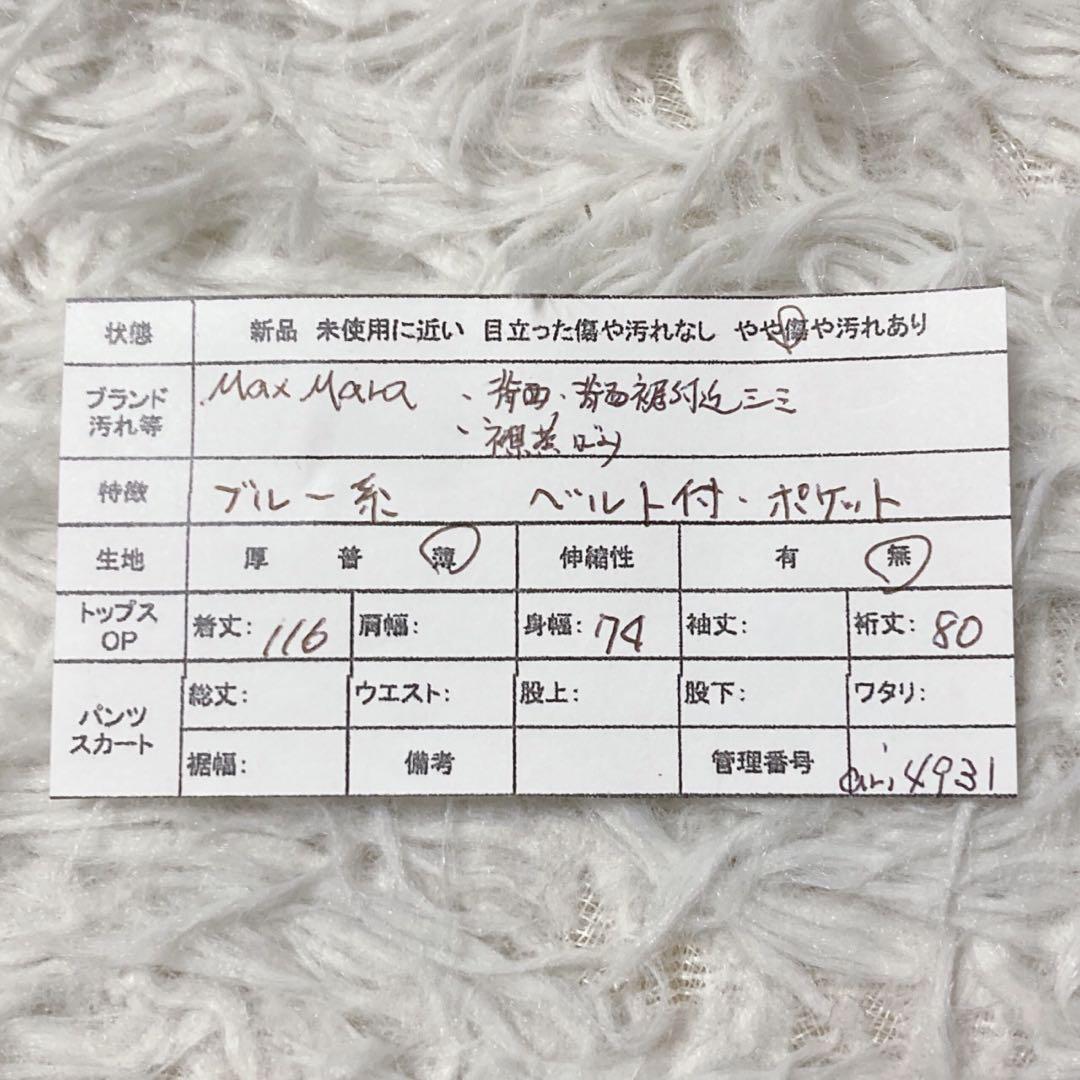 状態 新品 未使用に近い 目立った傷や汚れなし やや傷や汚れあり
ブランド 汚れ等 Max Mara ・背面・背面裾付近シミ
・襟黄ばみ
特徴 ブルー系 ベルト付・ポケット
生地 厚 普 薄 伸縮性 有 無
トップス OP 着丈:116 肩幅: 身幅:74 袖丈: 裄丈:80
パンツ スカート 総丈: ウエスト: 股上: 股下: ワタリ:
裾幅: 備考 管理番号 4931